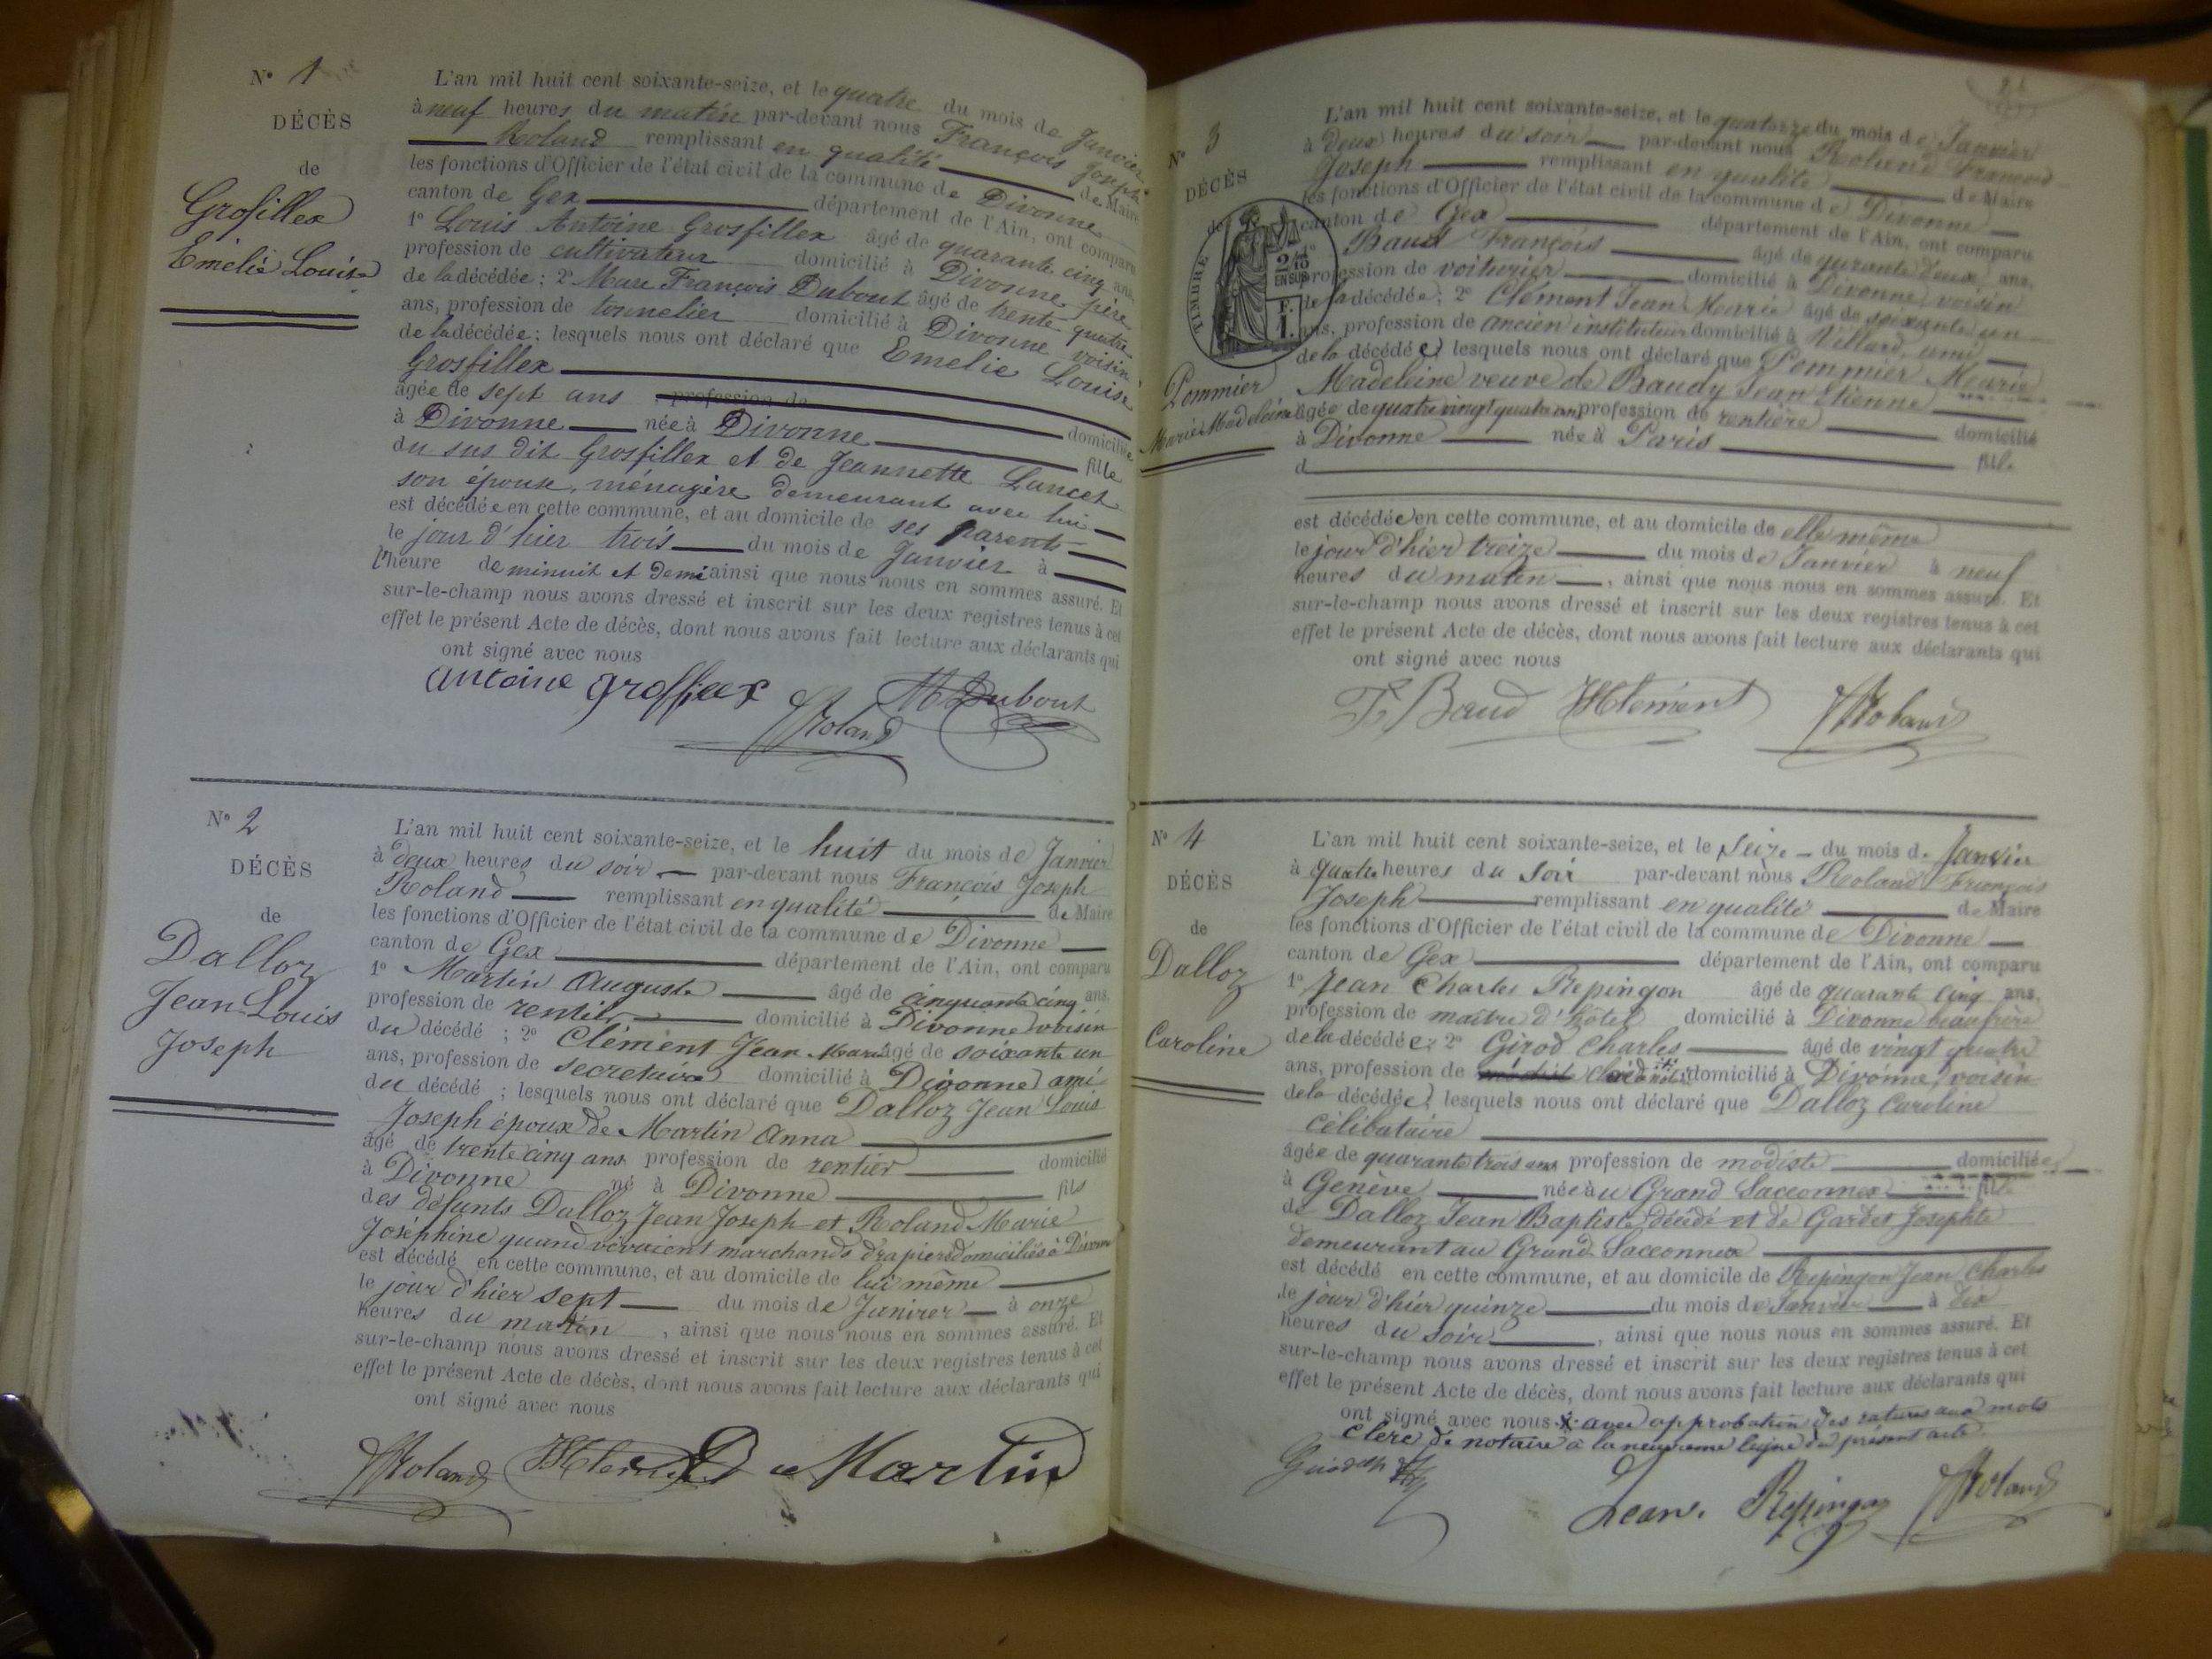 N° 1
DÉCÈS
de
Grosfillex
Emélie Louise
L'an mil huit cent soixante-seize, et le quatre du mois de Janvier
à neuf heures du matin par-devant nous François Joseph
Roland remplissant en qualité de Maire
les fonctions d'Officier de l'état civil de la commune de Divonne
canton de Gex département de l'Ain, ont comparu
1° Louis Antoine Grosfillex âgé de quarante cinq ans,
profession de cultivateur domicilié à Divonne père
de la décédée ; 2° Marc François Dubout âgé de trente quatre
ans, profession de tonnelier domicilié à Divonne voisin
de la décédée ; lesquels nous ont déclaré que Emelie Louise
Grosfillex
agée de sept ans profession de domiciliée
à Divonne née à Divonne fille
du sus dit Grosfillex et de Jeannette Lancet
son épouse, ménagère demeurant avec lui
est décédée en cette commune, et au domicile de ses parents
le jour d'hier trois du mois de Janvier à
l'heure de minuit et demi ainsi que nous nous en sommes assuré. Et
sur-le-champ nous avons dressé et inscrit sur les deux registres tenus à cet
effet le présent Acte de décès, dont nous avons fait lecture aux déclarants qui
ont signé avec nous
antoine grosfilex
M Dubout
Roland
N° 2
DÉCÈS
de
Dalloz
Jean Louis
Joseph
L'an mil huit cent soixante-seize, et le huit du mois de Janvier
à deux heures du soir par-devant nous François Joseph
Roland remplissant en qualité de Maire
les fonctions d'Officier de l'état civil de la commune de Divonne
canton de Gex département de l'Ain, ont comparu
1° Martin Auguste âgé de cinquante cinq ans,
profession de rentier domicilié à Divonne voisin
du décédé ; 2° Clément Jean Marie âgé de soixante un
ans, profession de secretaire domicilié à Divonne ami
du décédé ; lesquels nous ont déclaré que Dalloz Jean Louis
Joseph époux de Martin Anna
âgé de trente cinq ans profession de rentier domicilié
à Divonne né à Divonne fils
des défunts Dalloz Jean Joseph et Roland Marie
Joséphine quand vivaient marchands drapiers domiciliés à Divonne
est décédé en cette commune, et au domicile de lui même
le jour d'hier sept du mois de Janvier à onze
heures du matin, ainsi que nous nous en sommes assuré. Et
sur-le-champ nous avons dressé et inscrit sur les deux registres tenus à cet
effet le présent Acte de décès, dont nous avons fait lecture aux déclarants qui
ont signé avec nous
Roland Martin
N° 3
DÉCÈS
de
TIMBRE
2/10 EN SUS
F. 1.
Pommier
Marie Madeleine
L'an mil huit cent soixante-seize, et le quatorze du mois de Janvier
à deux heures du soir par-devant nous Roland François
Joseph remplissant en qualité de Maire
les fonctions d'Officier de l'état civil de la commune de Divonne
canton de Gex département de l'Ain, ont comparu
1° Baud François âgé de qurante deux ans,
profession de voiturier domicilié à Divonne voisin
de la décédée ; 2° Clément Jean Marie âgé de soixante un
ans, profession de ancien instituteur domicilié à Villard, ami
de la décédée lesquels nous ont déclaré que Pommier Marie
Madeleine veuve de Baudy Jean Etienne
âgée de quatre vingt quatre ans profession de rentière domicilié
à Divonne née à Paris fille
d
est décédée en cette commune, et au domicile de elle même
le jour d'hier treize du mois de Janvier à neuf
heures du matin, ainsi que nous nous en sommes assuré. Et
sur-le-champ nous avons dressé et inscrit sur les deux registres tenus à cet
effet le présent Acte de décès, dont nous avons fait lecture aux déclarants qui
ont signé avec nous
F. Baud JMClément Roland
N° 4
DÉCÈS
de
Dalloz
Caroline
L'an mil huit cent soixante-seize, et le seize du mois de Janvier
à quatre heures du soir par-devant nous Roland François
Joseph remplissant en qualité de Maire
les fonctions d'Officier de l'état civil de la commune de Divonne
canton de Gex département de l'Ain, ont comparu
1° Jean Charles Repingon âgé de quarante cinq ans,
profession de maître d'hôtel domicilié à Divonne beau frère
de la décédée ; 2° Girod Charles âgé de vingt quatre
ans, profession de domicilié à Divonne voisin
de la décédée lesquels nous ont déclaré que Dalloz Caroline
célibataire
âgée de quarante trois ans profession de modiste domiciliée
à Genève née au Grand Sacconnex fille
de Dalloz Jean Baptiste décédé et de Gardet Josephte
demeurant au Grand Sacconnex
est décédé en cette commune, et au domicile de Repingon Jean Charles
le jour d'hier quinze du mois de Janvier à dix
heures du soir, ainsi que nous nous en sommes assuré. Et
sur-le-champ nous avons dressé et inscrit sur les deux registres tenus à cet
effet le présent Acte de décès, dont nous avons fait lecture aux déclarants qui
ont signé avec nous avec approbation des ratures aux mots
clerc de notaire à la neuvieme ligne du présent acte
Jean. Repingon Roland